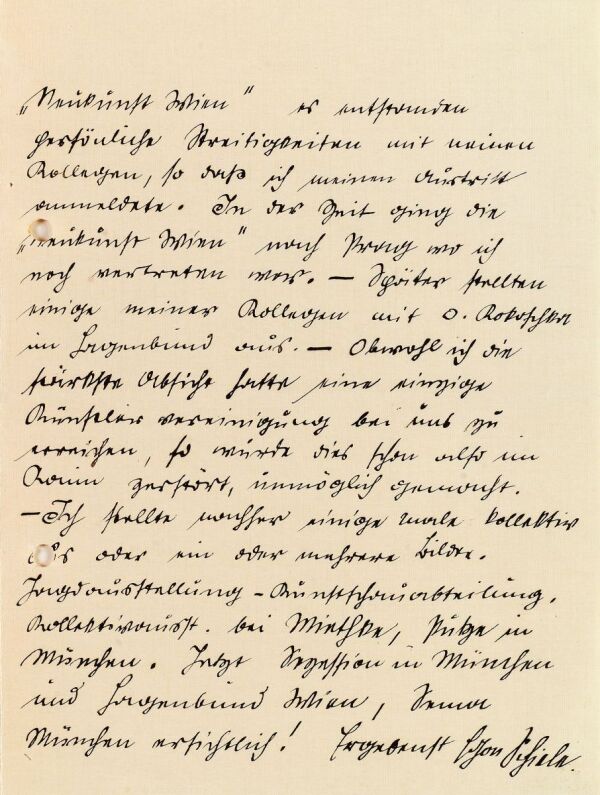 „Neukunst Wien“ es entstanden
persönliche Streitigkeiten mit meinen
Kollegen, so daß ich meinen Austritt
anmeldete. In der Zeit ging die
„Neukunst Wien“ nach Prag wo ich
noch vertreten war. – Später stellten
einige meiner Kollegen mit O. Kokoschka
im Hagenbund aus. – Obwohl ich die
stärkste Absicht hatte eine einzige
Künstlervereinigung bei uns zu
erreichen, so wurde dies schon also im
Keim zerstört, unmöglich gemacht.
– Ich stellte nachher einige male kollektiv
aus oder ein oder mehrere Bilder.
Jagdausstellung – Kunstschauabteilung.
Kollektivausst. bei Miethke, Putze in
München. Jetzt Sezession in München
und Hagenbund Wien, Sema
München ersichtlich! Ergebenst Egon Schiele.